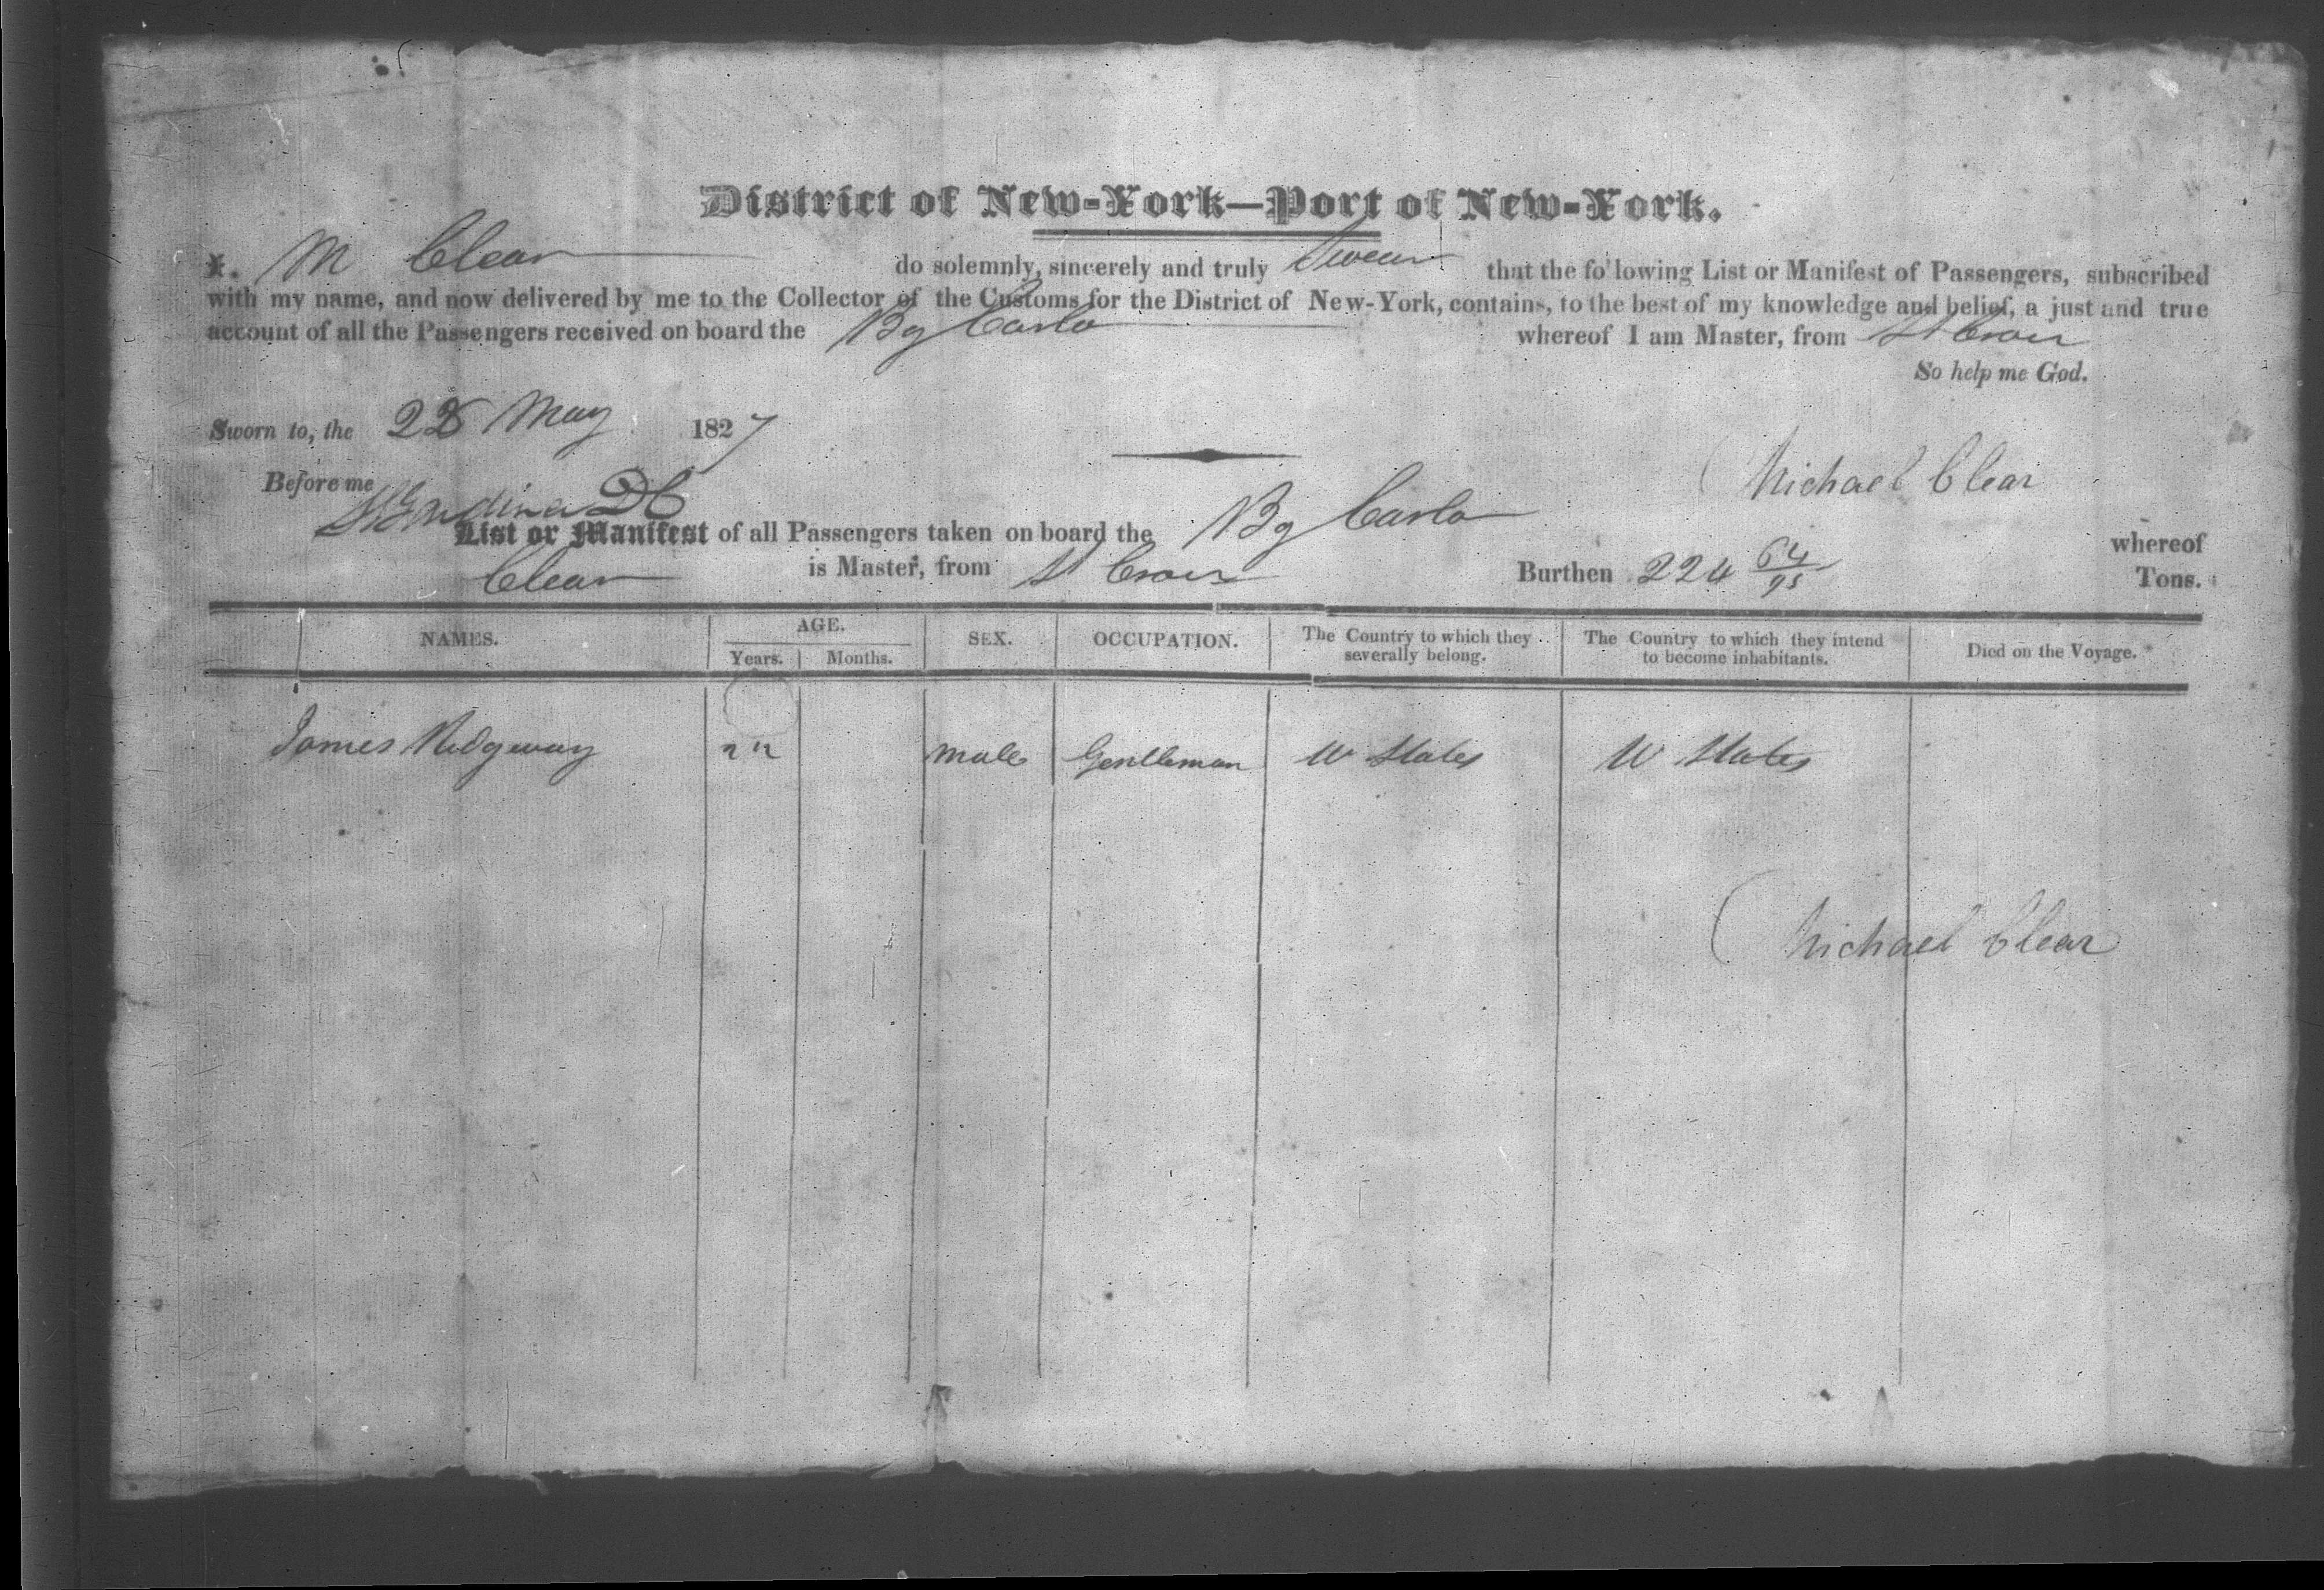 District of New-York—Port of New-York.
I. M Clear do solemnly, sincerely and truly Swear that the following List or Manifest of Passengers, subscribed
with my name, and now delivered by me to the Collector of the Customs for the District of New-York, contains, to the best of my knowledge and belief, a just and true
account of all the Passengers received on board the Bg Carlo whereof I am Master, from St Croix
So help me God.
Sworn to, the 28 May 1827
Michael Clear
Before me
List or Manifest of all Passengers taken on board the Bg Carlo whereof
Clear is Master, from St Croix Burthen 224 64/95 Tons.
NAMES. AGE. SEX. OCCUPATION. The Country to which they severally belong. The Country to which they intend to become inhabitants. Died on the Voyage.
Years. Months.
James Ridgeway 22 male Gentleman U States U States
Michael Clear